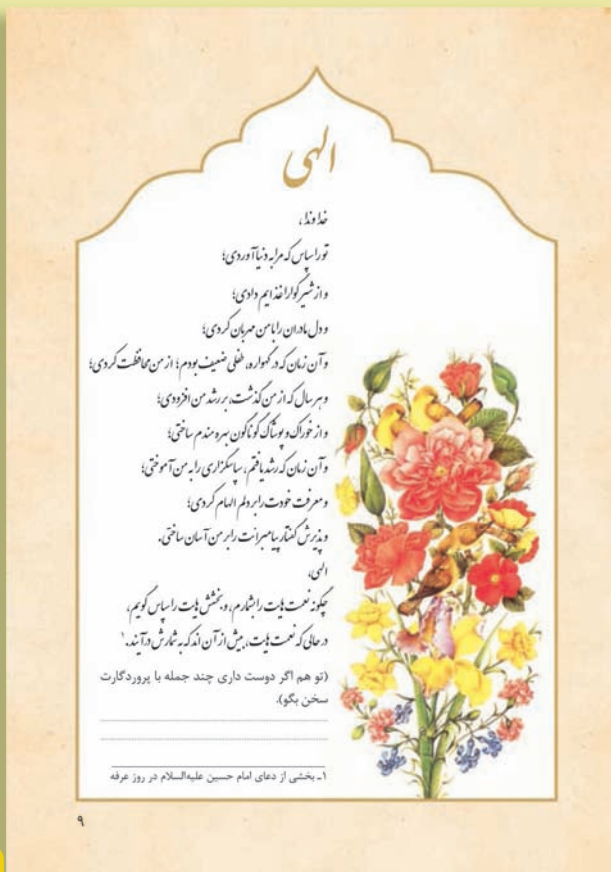 الهی
خداوندا،
تو را سپاس که مرا به دنیا آوردی؛
و از شیر گوارا غذایم دادی؛
و دل مادران را با من مهربان کردی؛
و آن زمان که در گهواره، طفلی ضعیف بودم؛ از من محافظت کردی؛
و هر سال که از من گذشت، بر رشد من افزودی؛
و از خوراک و پوشاک گوناگون بهره مندم ساختی؛
و آن زمان که رشد یافتم، سپاسگزاری را به من آموختی؛
و معرفت خودت را بر دلم الهام کردی؛
و پذیرش گفتار پیامبرانت را بر من آسان ساختی.
الهی،
چگونه نعمت هایت را بشمارم، و بخشش هایت را سپاس گویم،
در حالی که نعمت هایت، بیش از آن اند که به شمارش درآیند.۱
(تو هم اگر دوست داری چند جمله با پروردگارت
سخن بگو).
۱ـ بخشی از دعای امام حسین علیه‌السلام در روز عرفه
۹